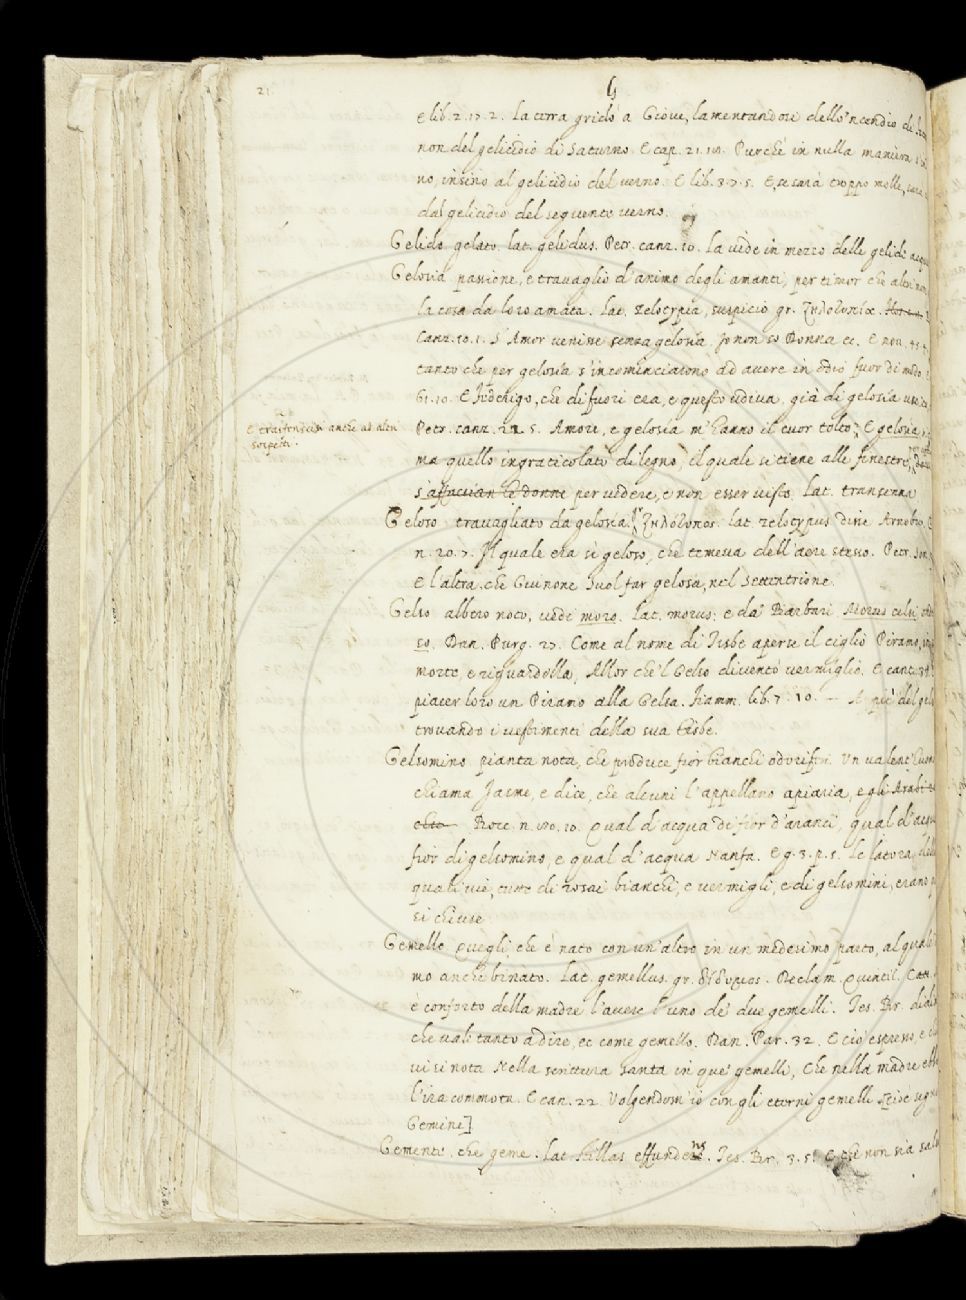 21.
G
e lib. 2. 17. 2. La terra gridò a Giove, lamentandosi dello'ncendio di
non del gelicidio di Saturno. E cap. 21. 18. Purchè in nulla maniera
no, insino al gelicidio del verno. E lib. 3. 7. 5. E, se sarà troppo molle,
dal gelicidio del seguente verno.
Gelido gelato. lat. gelidus. Petr. canz. 10. La vide in mezzo delle gelide acque
Gelosia passione, e travaglio d'animo degli amanti, per timor che altri non
la cosa da loro amata. Lat. zelotypia, suspicio gr. ζηλοτυπία.
Canz. 10. 1. S'Amor venisse senza gelosia. Io non so Donna ec. E nov.
tanto che per gelosia s'incominciarono ad avere in odio fuor di modo
61. 10. E Federigo, che di fuori era, e questo udiva già di gelosia
E trasferiscesi anche ad altri
sospetti.
Petr. canz. 22. 5. Amore, e gelosia m'hanno il cuor tolto; E gelosia,
ma quello ingraticolato di legno, il quale si tiene alle finestre,
s'affaccian le donne per vedere, e non esser visto. Lat. transenna
Geloso travagliato da gelosia. gr. ζηλότυπος. lat. zelotypus disse Arnobio.
n. 20. 7. Il quale era sì geloso, che temeva dell'aere stesso. Petr. son.
E l'altra, che Giunone suol far gelosa, nel settentrione.
Gelso albero noto, vedi moro. Lat. morus: e da' Barbari Morus celsi
so. Dan. Purg. 27. Come al nome di Tisbe aperse il ciglio Piramo, in su la
morte, e riguardolla, Allor che'l Gelso diventò vermiglio. E cant. 33.
piacer loro un Piramo alla Gelsa. Fiamm. lib. 7. 10. — A piè del gelso
trovando i vestimenti della sua Tisbe.
Gelsomino pianta nota, che produce fior bianchi odoriferi. Un valent'huomo
chiama Jasme, e dice, che alcuni l'appellano apiaria, e gli Arabi
Bocc. n. 80. 10. Qual d'acqua di fior d'aranci, qual d'acqua
fior di gelsomino, e qual d'acqua Nanfa. E g. 3. p. 5. Le latora, delle
quali vie, tutte di rosai bianchi, e vermigli, e di gelsomini, erano
si chiuse
Gemello Quegli, che è nato con un'altro in un medesimo parto, al quale
mo anche binato. Lat. gemellus. gr. δίδυμος. Declam. Quintil.
è conforto della madre l'avere l'uno de' due gemelli. Tes. Br.
che vale tanto a dire, ec come gemello. Dan. Par. 32. E ciò espresso, e
vi si nota Nella scrittura santa in que' gemelli, Che nella madre
l'ira commota. E can. 22. Volgendom'io con gli eterni gemelli
Gemini]
Gemente. che geme. Lat. stillas effundens. Tes. Br. 3. 5. E che non sia